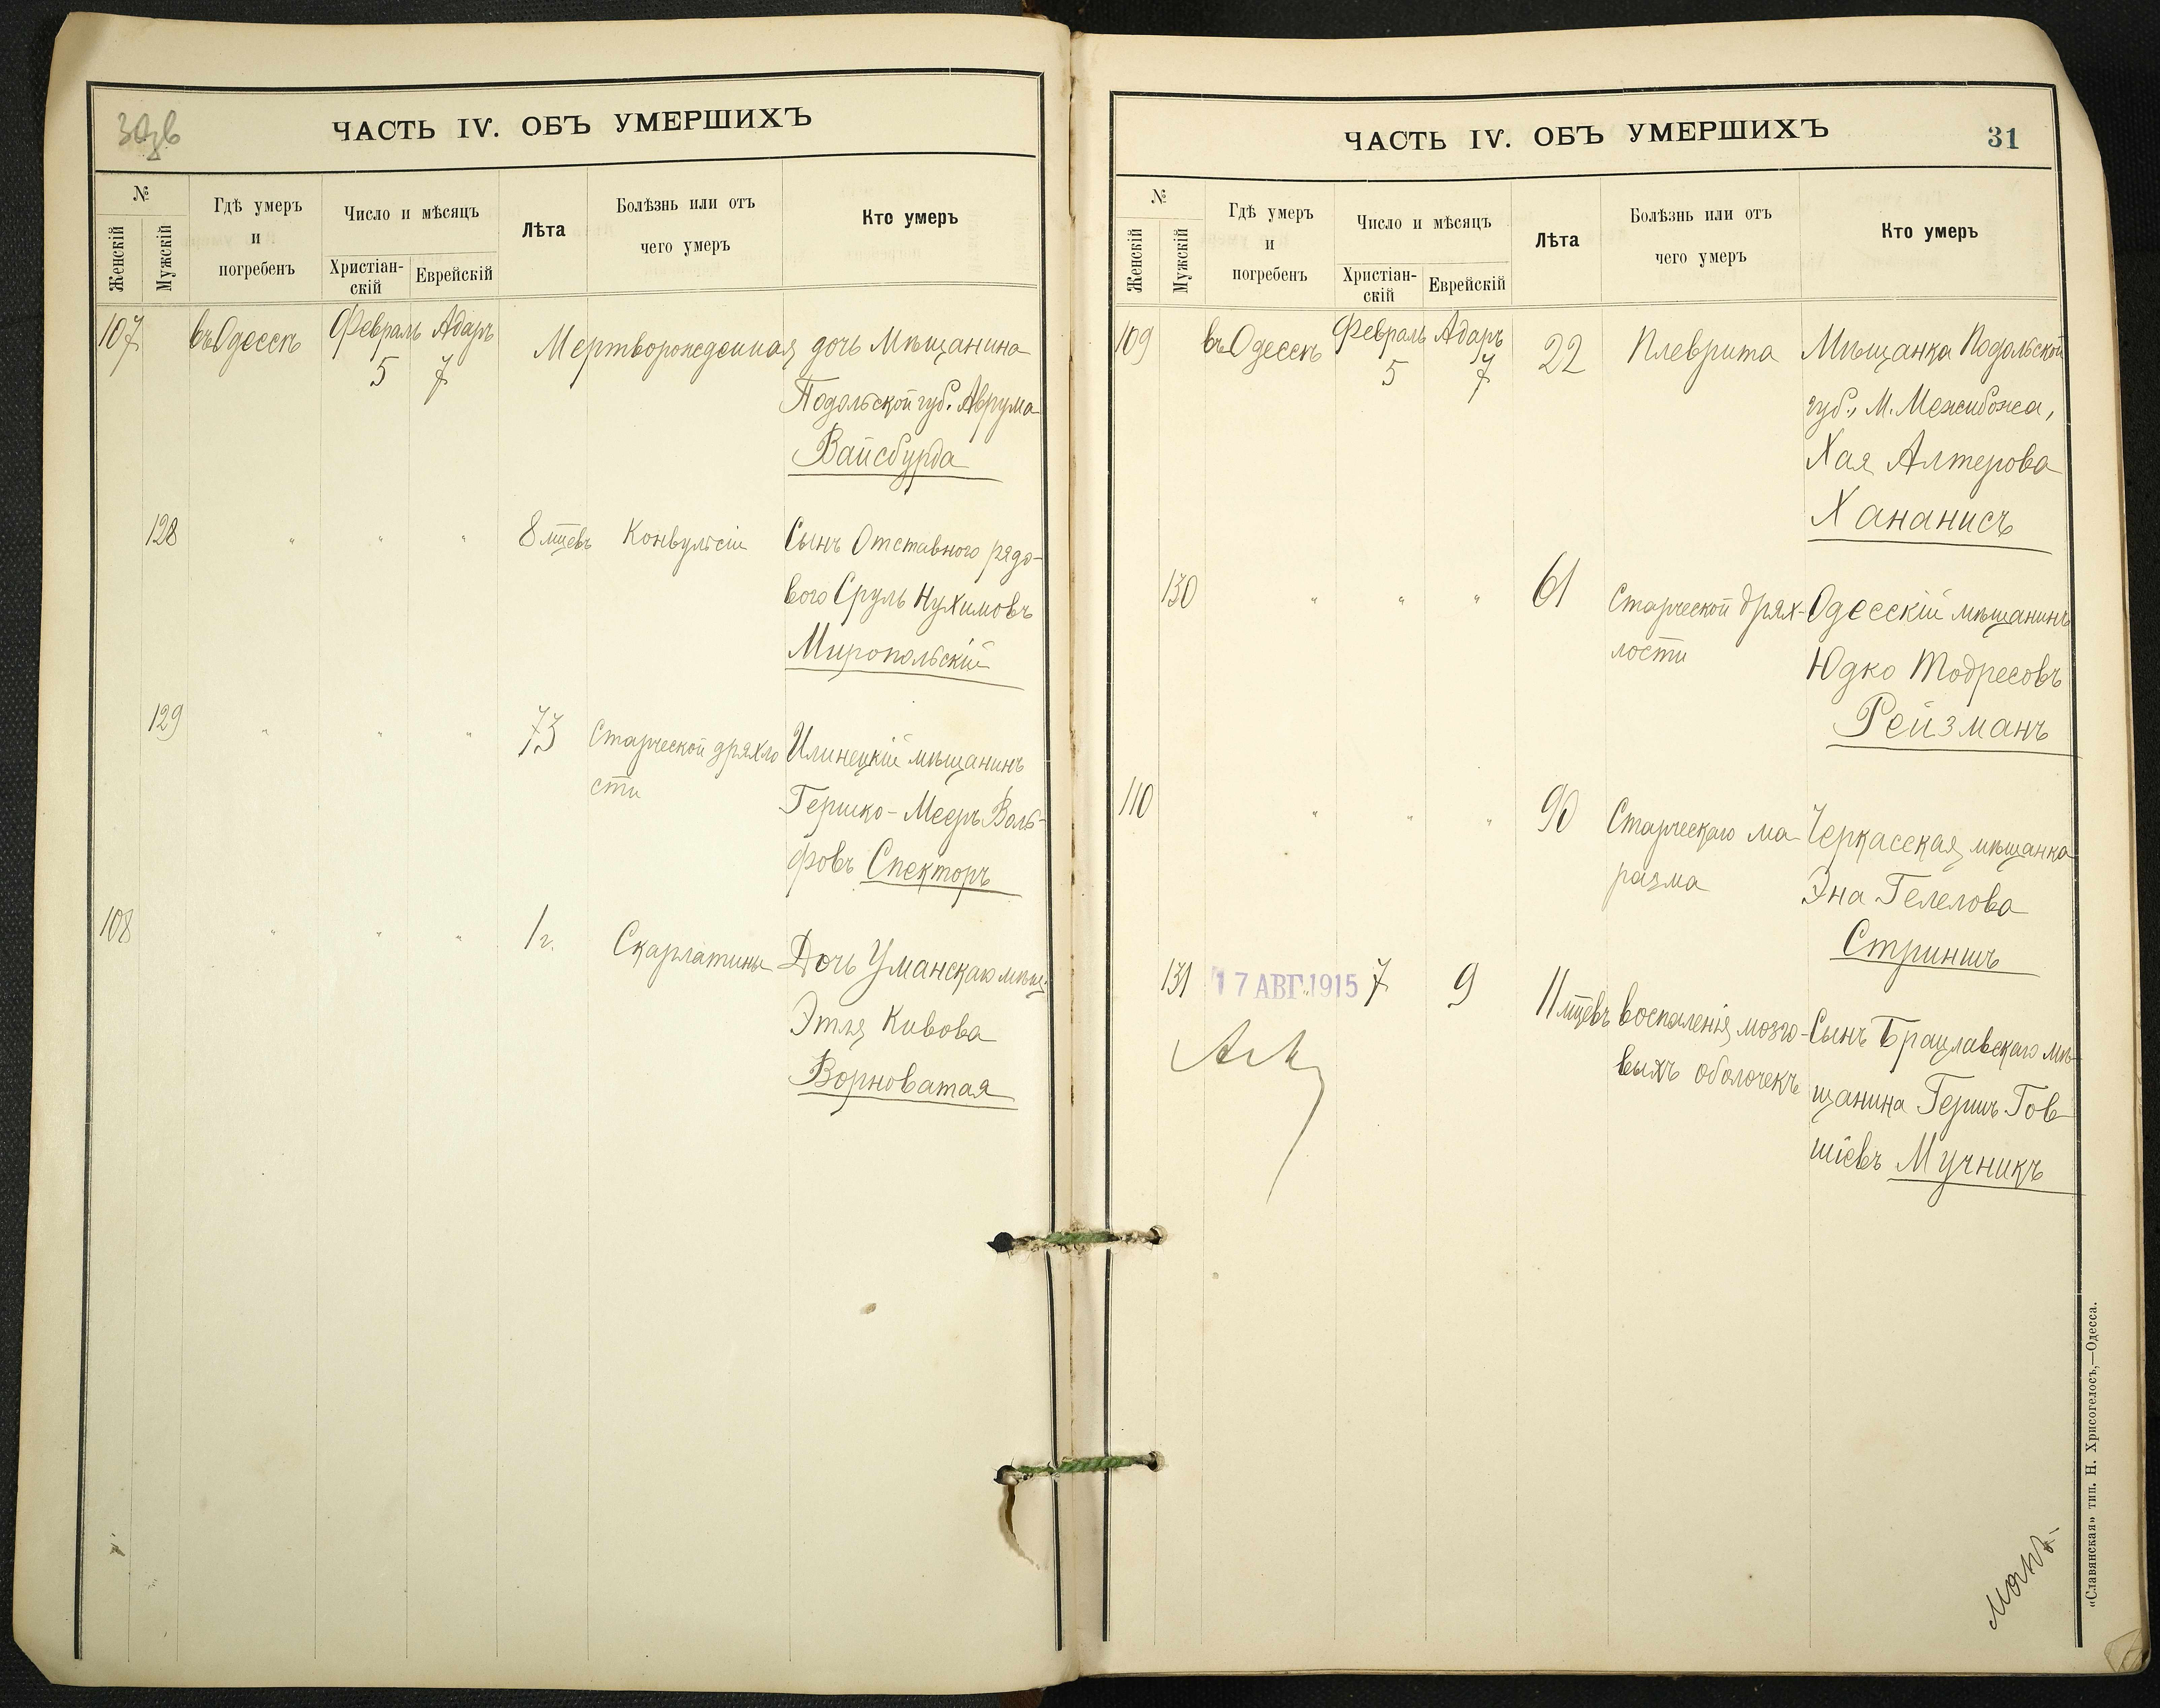 ЧАСТЬ IV. ОБЪ УМЕРШИХЪ
№
Женскій
Мужскій
Гдѣ умеръ
и
погребенъ
Число и мѣсяцъ
Христіан-
скій
Еврейскій
Лѣта
Болѣзнь или отъ
чего умеръ
Кто умеръ
107 въ Одессѣ Февраль Адаръ Мертворожденная дочь Мѣщанина
5 7
Подольской губ. Аврума
Вайсбурда
128 " " " 8 мцевъ Конвульсіи Сынъ Отставного рядо-
вого Сруль Нухимовъ
Миропольскій
129 " " " 73 Старческой дряхло Илинецкій мѣщанинъ
сти
Гершко-Мееръ Воль-
фовъ Спекторъ
108 " " " 1 г. Скарлатины Дочь Уманскаго мѣщ.
Этля Кивова
Ворноватая
ЧАСТЬ IV. ОБЪ УМЕРШИХЪ 31
№
Женскій
Мужскій
Гдѣ умеръ
и
погребенъ
Число и мѣсяцъ
Христіан-
скій
Еврейскій
Лѣта
Болѣзнь или отъ
чего умеръ
Кто умеръ
109 въ Одессѣ Февраль Адаръ 22 Плеврита Мѣщанка Подольской
5 7
губ., М. Межибожа,
Хая Алтерова
Хананисъ
130 " " " 61 Старческой дрях- Одесскій мѣщанинъ
лости
Юдко Тодресовъ
Рейзманъ
110 " " " 90 Старческаго ма- Черкасская мѣщанка
разма
Эна Гелелова
Стриншъ
131 17 АВГ. 1915 7 9 11 мцевъ воспаленія мозго- Сынъ Брацлавскаго мѣ-
выхъ оболочекъ
щанина Гершъ Гов
шіевъ Мучникъ
«Славянская» тип. Н. Хрисогелосъ,—Одесса.